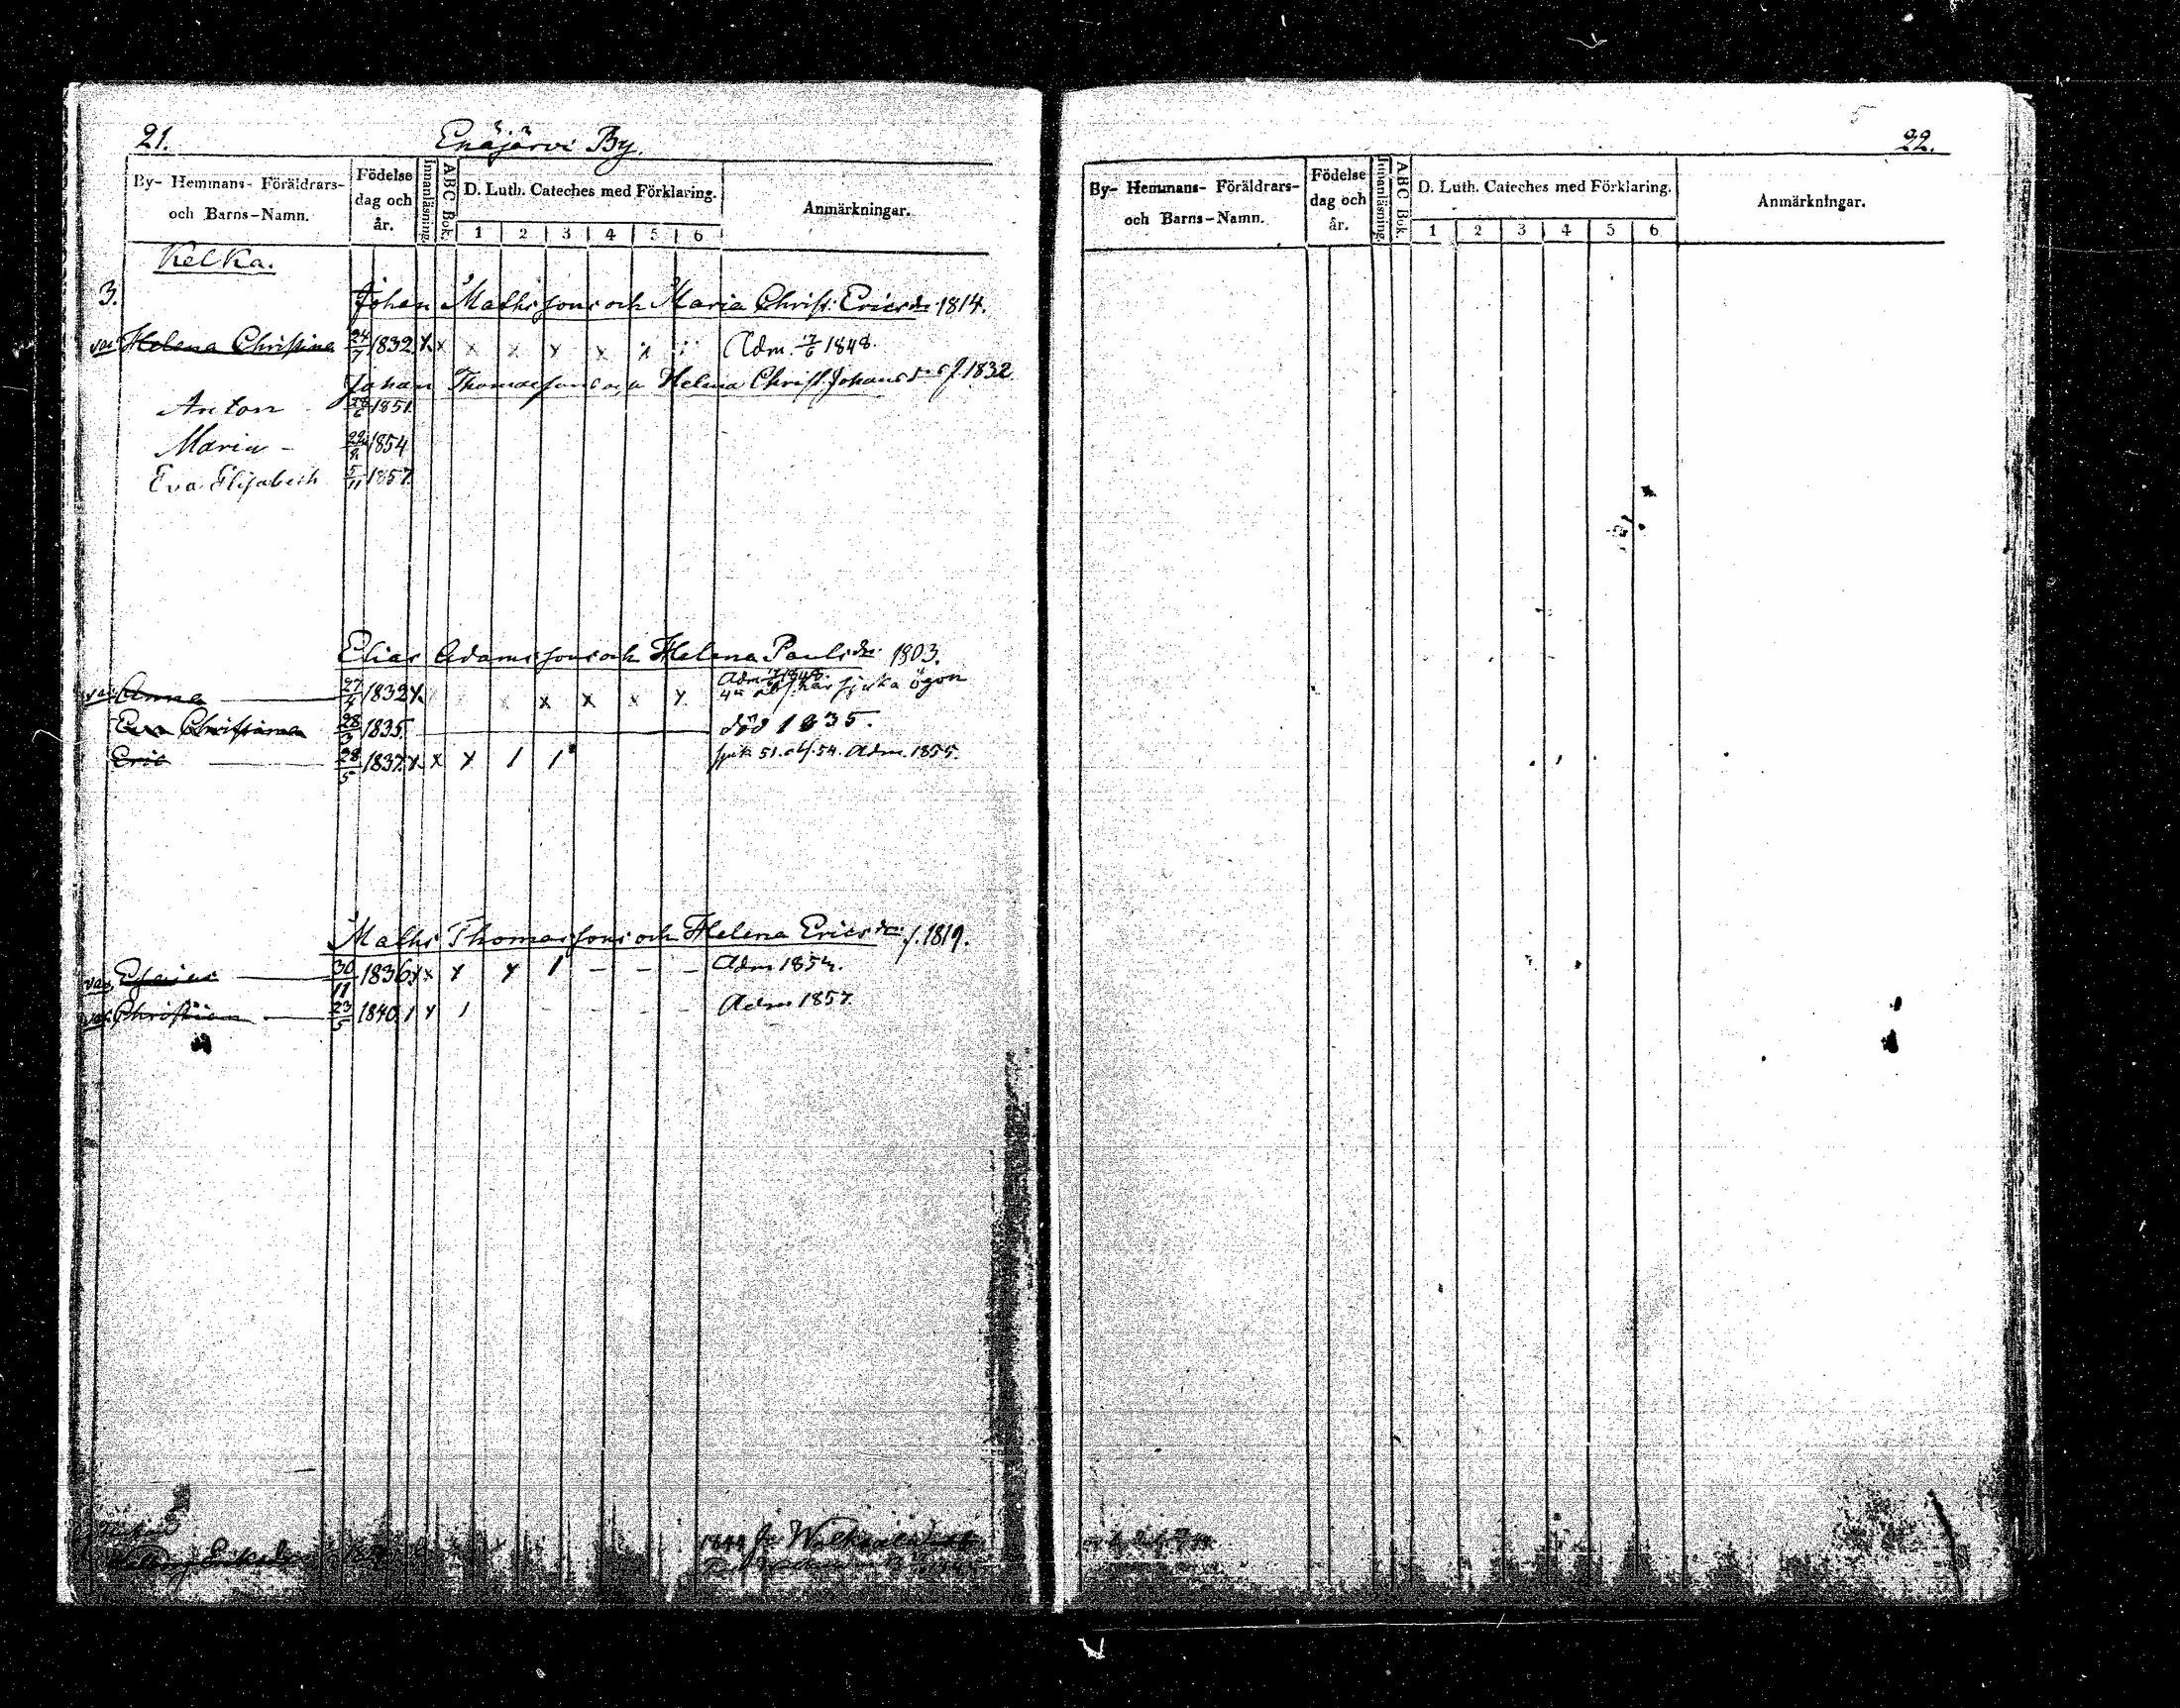 21.
Enäjärvi By.
By- Hemmans- Föräldrars-
och Barns-Namn.
Födelse
dag och
år.
Innanläsning.
ABC Bok.
D. Luth. Cateches med Förklaring.
1 2 3 4 5 6
Anmärkningar.
Kelka.
3. Johan Mathssons och Maria Christ: Ericsdr. 1814.
vac. Helena Christina 24/7 1832. x x x x x x x Adm. 7/6 1848.
Johan Thomassons och Helena Christ. Johansdr f. 1832.
Anton 1851.
Maria - 1854
Eva Elisabeth 5/11 1857.
Elias Adamssons och Helena Paulsdr. 1803.
vac. Anna 27/4 1832 x x x x x x har sjuka ögon
Eva Christina 28/3 1835. död 1835.
Eric 28/5 1837. x x x / / sjuk 51. abs. 54. Adm. 1855.
Maths Thomassons och Helena Ericsdr. f. 1819.
vac. Esaias 30/11 1836. x x x x / - - - Adm 1854.
vac. Christian 23/5 1840. / x / - - - Adm 1857.
Eriksdr
22.
By- Hemmans- Föräldrars-
och Barns-Namn.
Födelse
dag och
år.
Innanläsning.
ABC Bok.
D. Luth. Cateches med Förklaring.
1 2 3 4 5 6
Anmärkningar.